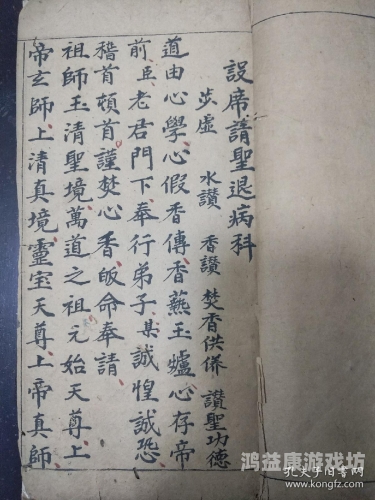 設席請聖退病科
步虛 水讚 香讚 焚香供養 讚聖功德
道由心學心假香傳香爇玉爐心存帝
前臣老君門下奉行弟子某誠惶誠恐
稽首頓首謹焚心香皈命奉請
祖師玉清聖境萬道之祖元始天尊上
帝玄師上清真境靈宝天尊上帝真師
鸿益康游戏坊
孔夫子旧书网
www.kongfz.com